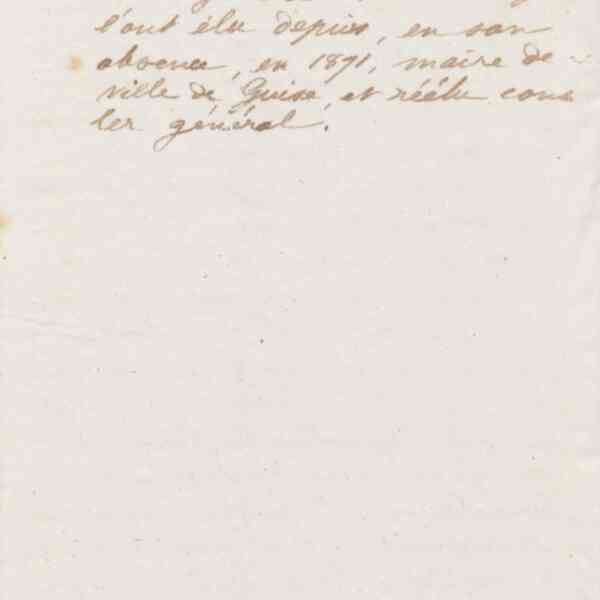 l'ont élu depuis, en son
absence, en 1871, maire de
ville de Guise, et réélu cons
ler général.